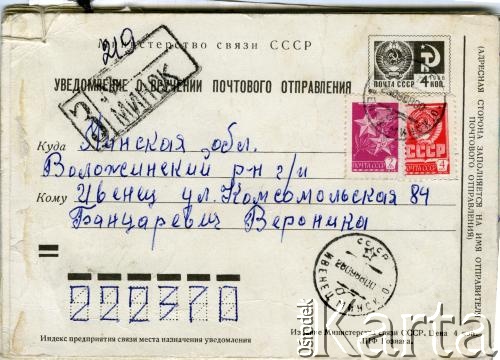 219
Министерство связи СССР
УВЕДОМЛЕНИЕ О ВРУЧЕНИИ ПОЧТОВОГО ОТПРАВЛЕНИЯ
З
МИНСК
ПОЧТА СССР 4 КОП.
ПОЧТА СССР 2
СССР
ПОЧТА СССР 4
Куда Минская обл.
Воложинский р-н г/п
Кому Ивенец ул. Комсомольская 84
Банцаревич Вероника
СССР
ИВЕНЕЦ МИНСК. О.
222370
Индекс предприятия связи места назначения уведомления
Издание Министерства связи СССР. Цена 4 коп.
ПФГ Гознака.
(АДРЕСНАЯ СТОРОНА ЗАПОЛНЯЕТСЯ НА ИМЯ ОТПРАВИТЕЛЯ
ПОЧТОВОГО ОТПРАВЛЕНИЯ)
ośrodek
Karta